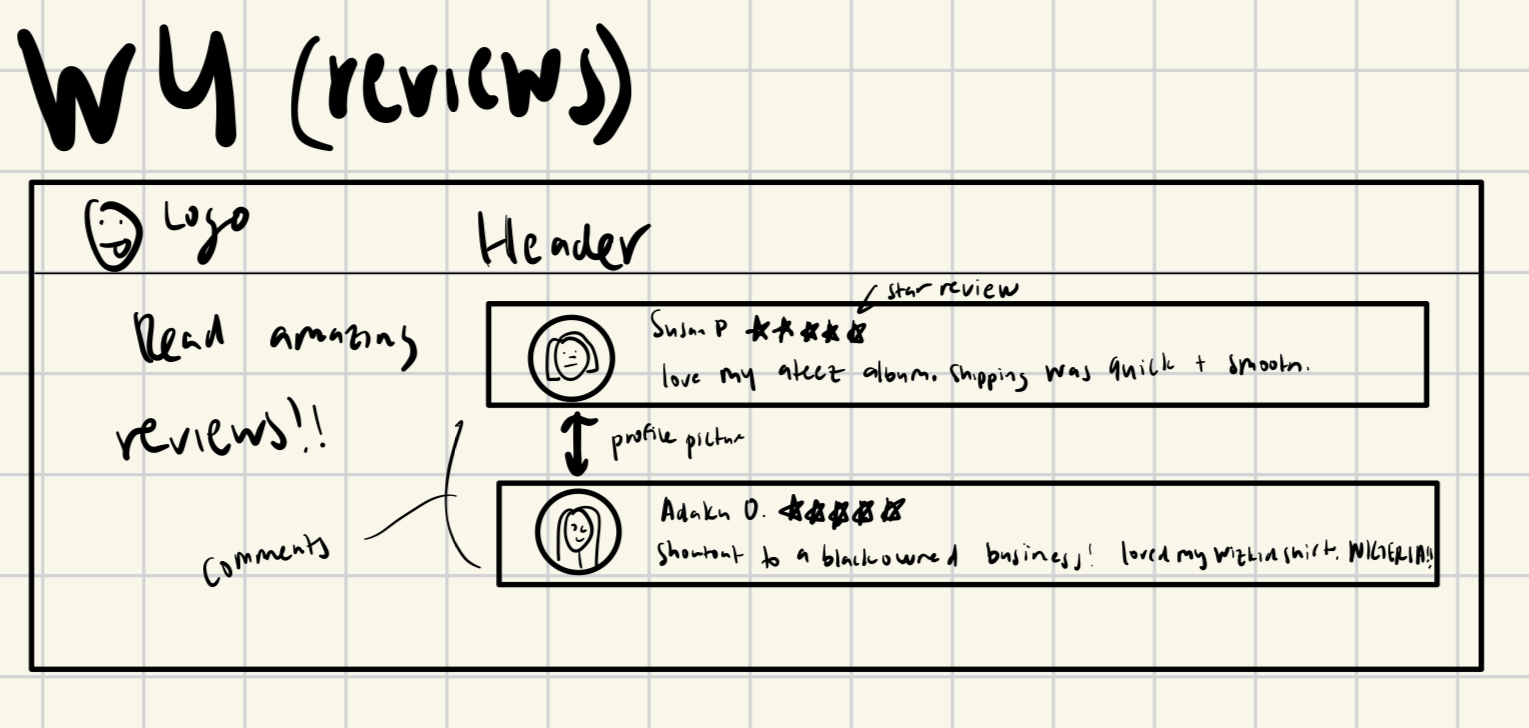 W4 (reviews)
Logo
Header
Read amazing
reviews!!
star review
Susan P
love my ateez album. Shipping was quick + smooth.
profile pictur
comments
Adaku O.
shoutout to a blackowned business! loved my wizkid shirt. NIGERIA!!